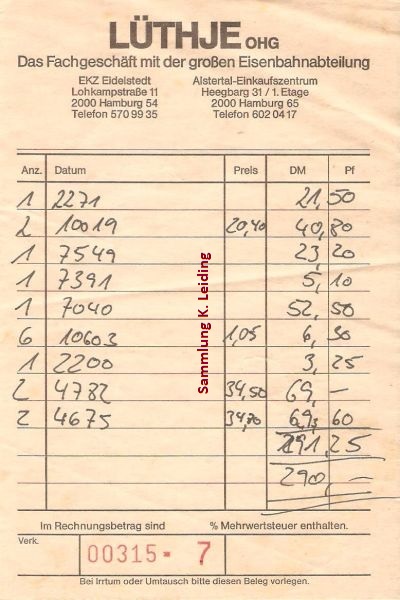 LÜTHJE OHG
Das Fachgeschäft mit der großen Eisenbahnabteilung
EKZ Eidelstedt Alstertal-Einkaufszentrum
Lohkampstraße 11 Heegbarg 31 / 1. Etage
2000 Hamburg 54 2000 Hamburg 65
Telefon 570 99 35 Telefon 602 04 17
Anz. Datum Preis DM Pf
1 2271 21, 50
2 10019 20,40 40, 80
1 7549 23, 20
1 7391 5, 10
1 7040 52, 50
6 10603 1,05 6, 30
1 2200 3, 25
2 4782 34,50 69, –
2 4675 34,70 69, 60
291, 25
290, –
Sammlung K. Leiding
Im Rechnungsbetrag sind % Mehrwertsteuer enthalten.
Verk. 00315 - 7
Bei Irrtum oder Umtausch bitte diesen Beleg vorlegen.